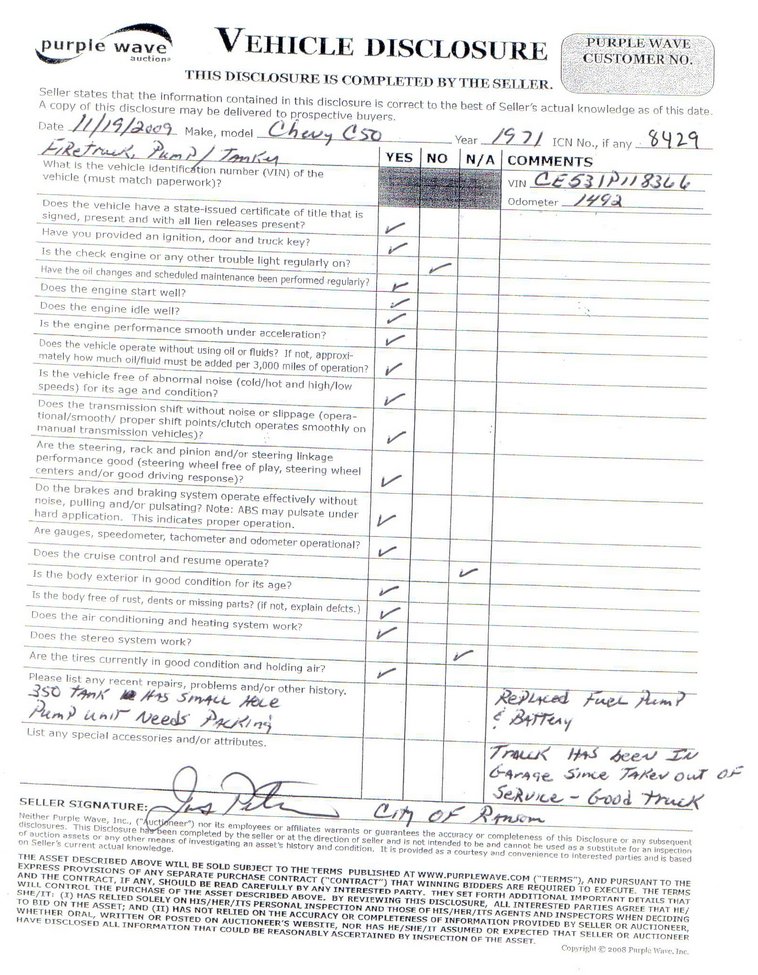 purple wave
auction®
VEHICLE DISCLOSURE
PURPLE WAVE
CUSTOMER NO.
THIS DISCLOSURE IS COMPLETED BY THE SELLER.
Seller states that the information contained in this disclosure is correct to the best of Seller's actual knowledge as of this date.
A copy of this disclosure may be delivered to prospective buyers.
Date 11/19/2009 Make, model Chevy C50 Year 1971 ICN No., if any 8429
Firetruck, Pump/Tanker
YES NO N/A COMMENTS
What is the vehicle identification number (VIN) of the
vehicle (must match paperwork)?
VIN CE531P118366
Odometer 1492
Does the vehicle have a state-issued certificate of title that is
signed, present and with all lien releases present? ✓
Have you provided an ignition, door and truck key? ✓
Is the check engine or any other trouble light regularly on? ✓
Have the oil changes and scheduled maintenance been performed regularly? ✓
Does the engine start well? ✓
Does the engine idle well? ✓
Is the engine performance smooth under acceleration? ✓
Does the vehicle operate without using oil or fluids? If not, approxi-
mately how much oil/fluid must be added per 3,000 miles of operation? ✓
Is the vehicle free of abnormal noise (cold/hot and high/low
speeds) for its age and condition? ✓
Does the transmission shift without noise or slippage (opera-
tional/smooth/ proper shift points/clutch operates smoothly on
manual transmission vehicles)? ✓
Are the steering, rack and pinion and/or steering linkage
performance good (steering wheel free of play, steering wheel
centers and/or good driving response)? ✓
Do the brakes and braking system operate effectively without
noise, pulling and/or pulsating? Note: ABS may pulsate under
hard application. This indicates proper operation. ✓
Are gauges, speedometer, tachometer and odometer operational? ✓
Does the cruise control and resume operate? ✓
Is the body exterior in good condition for its age? ✓
Is the body free of rust, dents or missing parts? (if not, explain defcts.) ✓
Does the air conditioning and heating system work? ✓
Does the stereo system work? ✓
Are the tires currently in good condition and holding air? ✓
Please list any recent repairs, problems and/or other history.
350 Tank Has Small Hole
Pump Unit Needs Packing
Replaced Fuel Pump
& Battery
List any special accessories and/or attributes.
Truck Has been In
Garage Since Taken out of
Service - Good Truck
SELLER SIGNATURE:
City Of Ransom
Neither Purple Wave, Inc., ("Auctioneer") nor its employees or affiliates warrants or guarantees the accuracy or completeness of this Disclosure or any subsequent
disclosures. This Disclosure has been completed by the seller or at the direction of seller and is not intended to be and cannot be used as a substitute for an inspection
of auction assets or any other means of investigating an asset's history and condition. It is provided as a courtesy and convenience to interested parties and is based
on Seller's current actual knowledge.
THE ASSET DESCRIBED ABOVE WILL BE SOLD SUBJECT TO THE TERMS PUBLISHED AT WWW.PURPLEWAVE.COM ("TERMS"), AND PURSUANT TO THE
EXPRESS PROVISIONS OF ANY SEPARATE PURCHASE CONTRACT ("CONTRACT") THAT WINNING BIDDERS ARE REQUIRED TO EXECUTE. THE TERMS
AND THE CONTRACT, IF ANY, SHOULD BE READ CAREFULLY BY ANY INTERESTED PARTY. THEY SET FORTH ADDITIONAL IMPORTANT DETAILS THAT
WILL CONTROL THE PURCHASE OF THE ASSET DESCRIBED ABOVE. BY REVIEWING THIS DISCLOSURE, ALL INTERESTED PARTIES AGREE THAT HE/
SHE/IT: (I) HAS RELIED SOLELY ON HIS/HER/ITS PERSONAL INSPECTION AND THOSE OF HIS/HER/ITS AGENTS AND INSPECTORS WHEN DECIDING
TO BID ON THE ASSET; AND (II) HAS NOT RELIED ON THE ACCURACY OR COMPLETENESS OF INFORMATION PROVIDED BY SELLER OR AUCTIONEER,
WHETHER ORAL, WRITTEN OR POSTED ON AUCTIONEER'S WEBSITE, NOR HAS HE/SHE/IT ASSUMED OR EXPECTED THAT SELLER OR AUCTIONEER
HAVE DISCLOSED ALL INFORMATION THAT COULD BE REASONABLY ASCERTAINED BY INSPECTION OF THE ASSET.
Copyright © 2008 Purple Wave, Inc.